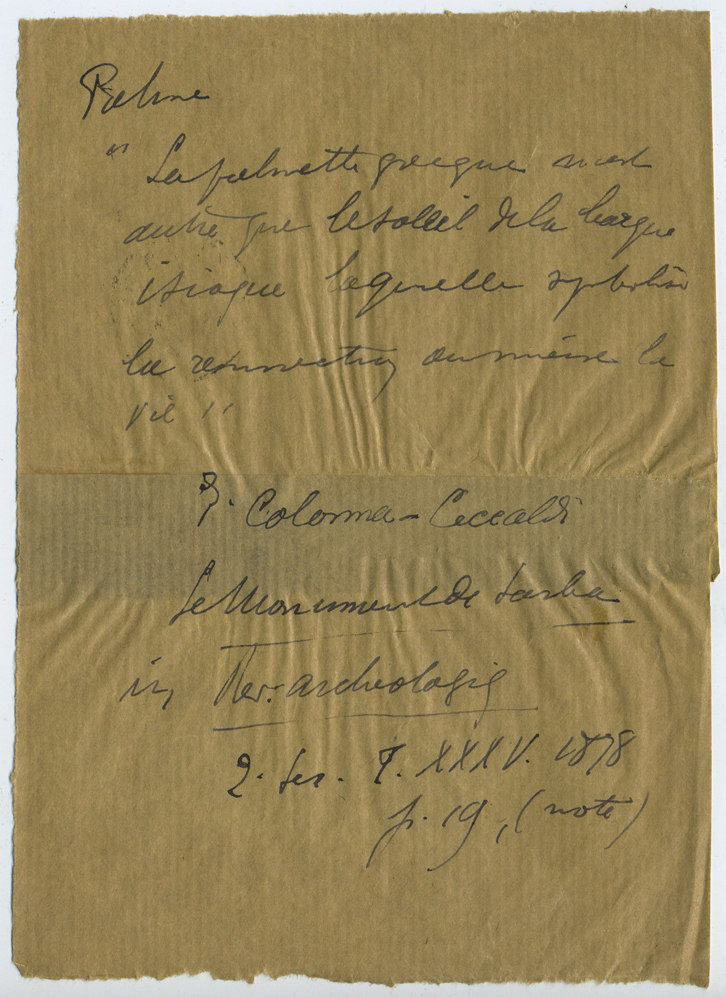 Palme
" La palmette grecque n'est
autre que le soleil de la barque
isiaque laquelle symbolise
la resurrection ou même la
vie "
G. Colonna-Ceccaldi
Le Monument de Sarba
in Rev. archeologiq
2. Ser. T. XXXV. 1878
p. 19, (note)